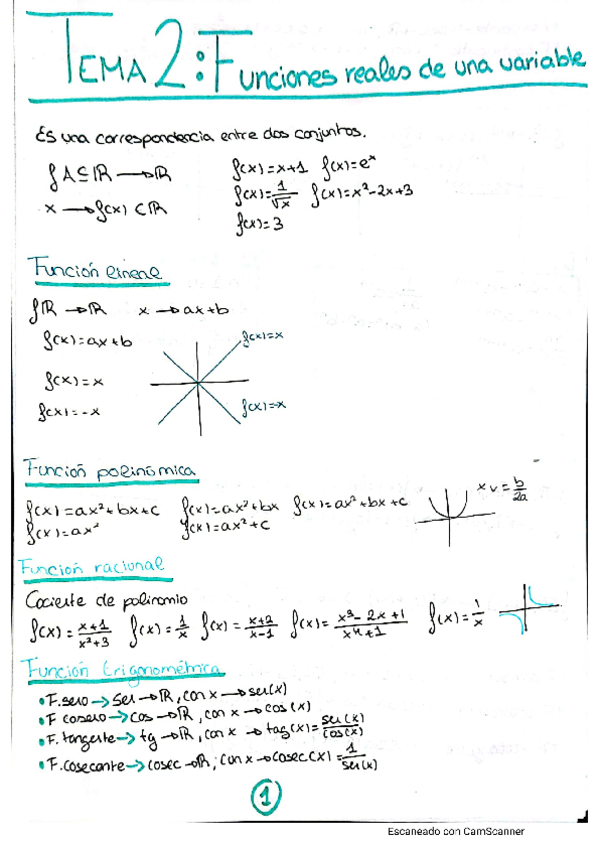 TEMA 2: Funciones reales de una variable
Es una correspondencia entre dos conjuntos.
f A⊆ℝ → ℝ
x → f(x) ⊂ ℝ
f(x)=x+1 f(x)=e^x
f(x)=1/√x f(x)=x²-2x+3
f(x)=3
Función lineal
f ℝ → ℝ x → ax+b
f(x)=ax+b
f(x)=x
f(x)=-x
f(x)=x
f(x)=-x
Función polinómica
f(x)=ax²+bx+c f(x)=ax²+bx f(x)=ax²+bx+c
f(x)=ax² f(x)=ax²+c
xv=b/2a
Función racional
Cociente de polinomio
f(x)=(x+1)/(x²+3) f(x)=1/x f(x)=(x+2)/(x-1) f(x)=(x³-2x+1)/(x⁴+1) f(x)=1/x
Función trigonométrica
• F. seno → sen → ℝ, con x → sen(x)
• F coseno → cos → ℝ, con x → cos(x)
• F. tangente → tg → ℝ, con x → tag(x)=sen(x)/cos(x)
• F. cosecante → cosec → ℝ; con x → cosec(x)=1/sen(x)
1
Escaneado con CamScanner